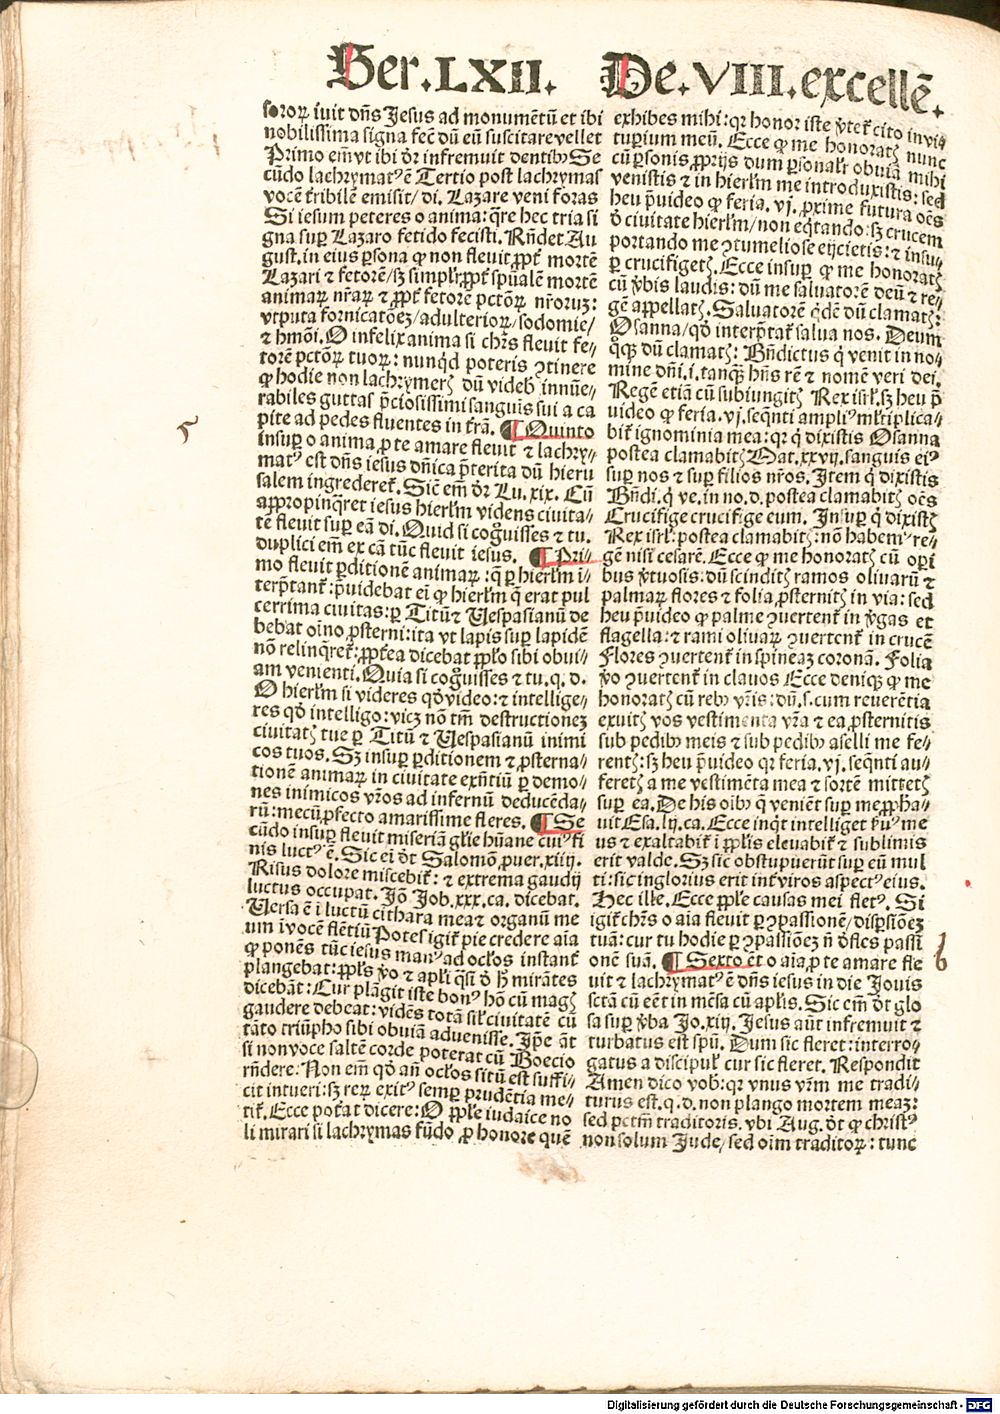 Ser. LXII. De. VIII. excellē.
soroꝝ iuit dn̄s Jesus ad monumētū et ibi
nobilissima signa fec̄ dū eū suscitare vellet
Primo em̄ vt ibi dr̄ infremuit dentibꝰ Se
cūdo lachrymatꝰ ē Tertio post lachrymas
vocē tr̄ribilē emisit/ di. Lazare veni foras
Si iesum peteres o anima: q̄re hec tria si
gna suꝑ Lazaro fetido fecisti. Rn̄det Au
gust. in eius ꝑsona ꝙ non fleuit ꝓpt̄ mortē
Lazari ⁊ fetorē/ sꝫ simplr̄ ꝓpt̄ spūalē mortē
animaꝝ nr̄aꝝ ⁊ ꝓpt̄ fetorē pctōꝝ nr̄oruꝫ:
vtputa fornicatōeꝫ/ adulterioꝝ/ sodomie/
⁊ hmōi. O infelix anima si chr̄s fleuit fe⸗
torē pctōꝝ tuoꝝ: nunqͥd poteris ꝯtinere
ꝙ hodie non lachrymerꝭ dū videbꝭ innūe⸗
rabiles guttas p̄ciosissimi sanguis sui a ca
pite ad pedes fluentes in tr̄ā. ¶ Quinto
insuꝑ o anima ꝓ te amare fleuit ⁊ lachry⸗
matꝰ est dn̄s iesus dn̄ica p̄terita dū hieru
salem ingrederet̄. Sic̄ em̄ dr̄ Lu. xix. Cū
appropinq̄ret iesus hierlm̄ videns ciuita⸗
tē fleuit suꝑ eā di. Quid si cogͦuisses ⁊ tu.
duplici em̄ ex cā tūc fleuit iesus. ¶ Pri⸗
mo fleuit ꝑditionē animaꝝ: q̄ ꝑ hierlm̄ i⸗
terp̄tant̄: p̄uidebat em̄ ꝙ hierlm̄ q̄ erat pul
cerrima ciuitas: ꝑ Titū ⁊ Vespasianū de
bebat oīno ꝓsterni: ita vt lapis suꝑ lapidē
nō relinq̄ret̄: ꝓpt̄ea dicebat ꝓplo sibi obui⸗
am venienti. Quia si cogͦuisses ⁊ tu. q. d.
O hierlm̄ si videres qd̄ video: ⁊ intellige⸗
res qd̄ intelligo: vicꝫ nō tm̄ destructioneꝫ
ciuitatꝭ tue ꝑ Titū ⁊ Vespasianū inimi
cos tuos. Sꝫ insuꝑ ꝑditionem ⁊ ꝓsterna⸗
tionē animaꝝ in ciuitate exn̄tiū ꝑ demo⸗
nes inimicos vr̄os ad infernū deducēda⸗
rū: mecū ꝓfecto amarissime fleres. ¶ Se
cūdo insuꝑ fleuit miseriā glr̄ie hūane cuiꝰ fi
nis luctꝰ ē. Sic ei dt̄ Salomō ꝓuer. xiiij.
Risus dolore miscebit̄: ⁊ extrema gaudij
luctus occupat. Jō Job. xxx. ca. dicebat.
Versa ē i luctū cithara mea ⁊ organū me
um i vocē flētiū Potes igit̄ pie credere aīa
ꝙ ponēs tūc iesus manꝰ ad oclos instant̄
plangebat: ꝓpls v̄o ⁊ apli qͣsi d̄ h̄ mirātes
dicebāt: Cur plāgit iste bonꝰ hō cū magꝭ
gaudere debeat: vidēs totā silr̄ ciuitatē cū
tāto triūpho sibi obuiā aduenisse. Ip̄e āt
si non voce saltē corde poterat cū Boecio
rn̄dere: Non em̄ qd̄ an̄ oclos sitū est suffi⸗
cit intueri: sꝫ reꝝ exitꝰ semꝑ prudētia me⸗
tit̄. Ecce pot̄at dicere: O ꝓple iudaice no
li mirari si lachrymas fūdo ꝓ honore quē
exhibes mihi: qꝛ honor iste v̄tet̄ cito in vi⸗
tuꝑium meū. Ecce ꝙ me honoratꝭ nunc
cū ꝑsonis ꝓprijs dum ꝑsonalr̄ obuiā mihi
venistis ⁊ in hierlm̄ me introduxistis: sed
heu p̄uideo ꝙ feria. vj. ꝓxime futura oēs
d̄ ciuitate hierlm̄/ non eqͥtando: sꝫ crucem
portando me ꝯtumeliose eijcietis: ⁊ insu⸗
ꝑ crucifigetꝭ. Ecce insuꝑ ꝙ me honoratꝭ
cū v̄bis laudis: dū me saluatorē deū ⁊ re⸗
gē appellatꝭ. Saluatorē qͥdē dū clamatꝭ:
Osanna/ qd̄ interp̄tat̄ salua nos. Deum
qͦqꝫ dū clamatꝭ: Bn̄dictus q̄ venit in no⸗
mine dn̄i. i. tanqꝫ hn̄s rē ⁊ nomē veri dei.
Regē etiā cū subiungitꝭ Rex isrl̄. sꝫ heu p̄
uideo ꝙ feria. vj. seqn̄ti ampliꝰ ml̄tiplica⸗
bit̄ ignominia mea: qꝛ qͥ dixistis Osanna
postea clamabitꝭ Mat. xxvij. sanguis eiꝰ
suꝑ nos ⁊ suꝑ filios nr̄os. Item qͥ dixistis
Bn̄di. qͥ ve. in no. d. postea clamabitꝭ oēs
Crucifige crucifige eum. Insuꝑ qͥ dixistꝭ
Rex isrl̄: postea clamabitꝭ: nō habemꝰ re⸗
gē nisi cesarē. Ecce ꝙ me honoratꝭ cū oꝑi
bus v̄tuosis: dū scinditꝭ ramos oliuarū ⁊
palmaꝝ flores ⁊ folia ꝓsternitꝭ in via: sed
heu p̄uideo ꝙ palme ꝯuertent̄ in v̄gas et
flagella: ⁊ rami oliuaꝝ ꝯuertent̄ in crucē
Flores ꝯuertent̄ in spineaꝫ coronā. Folia
v̄o ꝯuertent̄ in clauos Ecce deniqꝫ ꝙ me
honoratꝭ cū rebꝰ vr̄is: dū. s. cum reuerētia
exuitꝭ vos vestimenta vr̄a ⁊ ea ꝓsternitis
sub pedibꝰ meis ⁊ sub pedibꝰ aselli me fe⸗
rentꝭ: sꝫ heu p̄uideo qꝛ feria. vj. seqn̄ti au⸗
feretꝭ a me vestimēta mea ⁊ sortē mittetꝭ
suꝑ ea. De his oibꝰ q̄ veniēt suꝑ me ꝓpha⸗
uit Esa. lij. ca. Ecce inqͥt intelliget ẜuꝰ me
us ⁊ exaltabit̄ i ꝓplis eleuabit̄ ⁊ sublimis
erit valde. Sꝫ sic obstupuerūt suꝑ eū mul
ti: sic inglorius erit int̄ viros aspectꝰ eius.
Hec ille. Ecce ꝓple causas mei fletꝰ. Si
igit̄ chr̄s o aīa fleuit ꝑ ꝯpassionē/ disꝑsiōeꝫ
tuā: cur tu hodie ꝑ ꝯpassiōeꝫ n̄ d̄fles passi
onē suā. ¶ Sexto et̄ o aīa ꝓ te amare fle
uit ⁊ lachrymatꝰ ē dn̄s iesus in die Jouis
sctā cū eēt in mēsa cū aplis. Sic em̄ dt̄ glo
sa suꝑ v̄ba Jo. xiij. Jesus aūt infremuit ⁊
turbatus est spū. Dum sic fleret: interro⸗
gatus a discipul̄ cur sic fleret. Respondit
Amen dico vob̄: qꝛ vnus vr̄m me tradi⸗
turus est. q. d. non plango mortem meaꝫ:
sed pctm̄ traditoris. vbi Aug. dt̄ ꝙ christꝰ
non solum Jude/ sed oīm traditoꝝ: tunc
5
6
Digitalisierung gefördert durch die Deutsche Forschungsgemeinschaft - DFG